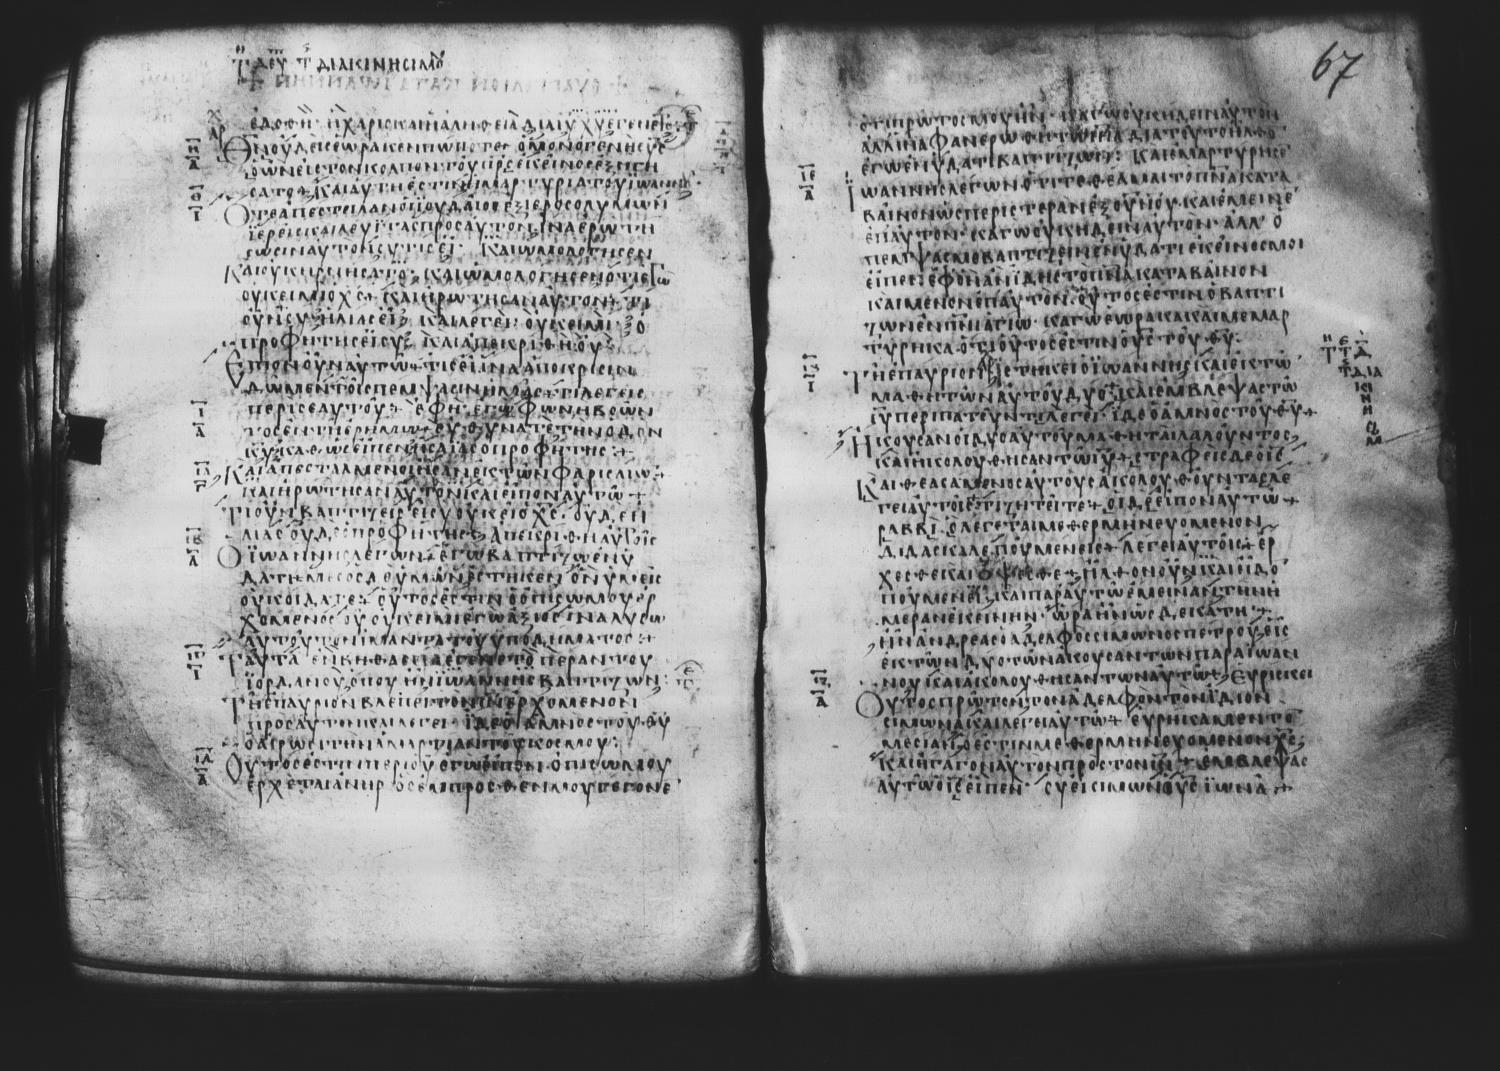 τῇ δευ τ διακινησιμου
ἐδόθη· ἡ χάρις καὶ ἡ ἀλήθεια διὰ ιυ χυ ἐγένετο
Θν οὐδεὶς ἑώρακεν πώποτε· ὁ μονογενὴς υς
ὁ ὢν εἰς τὸν κόλπον του πρς ἐκεῖνος ἐξηγή
σατο· Καὶ αὕτη ἐστὶν ἡ μαρτυρία του ϊωαννου
Ὅτε ἀπέστειλαν οἱ ϊουδαῖοι ἐξ ϊεροσολύμων
ϊερεῖς και λευΐτας πρὸς αὐτὸν· ϊνα ἐρωτή
σωσιν αὐτὸν σὺ τίς εἶ· Καὶ ὡμολόγησεν
Καὶ οὐκ ἠρνήσατο· καὶ ὡμολόγησεν ὅτι ἐγὼ
οὐκ εἰμὶ ὁ χς· Καὶ ἠρώτησαν αὐτόν· τί
οὖν· σὺ ἠλίας εἶ· Καὶ λέγει· οὐκ εἰμί· ὁ
προφήτης εἶ σύ· καὶ ἀπεκρίθη οὔ·
Εἶπον οὖν αὐτῶ· τίς εἶ ἵνα ἀπόκρισιν
δῶμεν τοῖς πέμψασιν ἡμᾶς· τί λέγεις
περὶ σεαυτοῦ· ἔφη· ἐγὼ φωνὴ βοῶν
τος ἐν τῆ ἐρήμω· εὐθύνατε τὴν ὁδὸν
κυ· καθὼς εἶπεν ἡσαΐας ὁ προφήτης·
Καὶ ἀπεσταλμένοι ἦσαν ἐκ τῶν φαρισαίων·
καὶ ἠρώτησαν αὐτὸν καὶ εἶπον αὐτῶ·
Τί οὖν βαπτίζεις εἰ σὺ οὐκ εἶ ὁ χς· οὐδὲ ἠ
λίας οὐδὲ ὁ προφήτης· Ἀπεκρίθη αὐτοῖς
Ὁ ϊωάννης λέγων· ἐγὼ βαπτίζω ἐν ὕ
δατι· μέσος δὲ ὑμῶν ἕστηκεν ὃν ὑμεῖς
οὐκ οἴδατε· οὗτός ἐστιν ὁ ὀπίσω μου ἐρ
χόμενος· οὗ οὐκ εἰμὶ ἐγὼ ἄξιος ἵνα λύσω
αὐτοῦ τὸν ἱμάντα τοῦ ὑποδήματος·
Ταῦτα ἐν βηθανία ἐγένετο πέραν του
ϊορδάνου ὅπου ἦν ϊωάννης βαπτίζων·
Τῆ ἐπαύριον βλέπει τὸν ιν ἐρχόμενον
πρὸς αὐτὸν καὶ λέγει· ϊδε ὁ ἀμνὸς τοῦ θυ
ὁ αἴρων τὴν ἁμαρτίαν τοῦ κόσμου·
Οὗτός ἐστιν περὶ οὗ ἐγὼ εἶπον· ὀπίσω μου
ἔρχεται ἀνὴρ ὃς ἔμπροσθέν μου γέγονε
67
ὅτι πρῶτός μου ἦν· κἀγὼ οὐκ ἤδειν αὐτὸν
ἀλλ ἵνα φανερωθῆ τῶ ιηλ διὰ τοῦτο ἦλθον
ἐγὼ ἐν ὕδατι βαπτίζων· Καὶ ἐμαρτύρησε
ϊωάννης λέγων ὅτι τεθέαμαι το πνα κατα
βαῖνον ὡς περιστεραν ἐξ οὐνου· καὶ ἔμεινε
ἐπ αὐτόν· κἀγὼ οὐκ ἤδειν αὐτὸν· ἀλλ ὁ
πέμψας με βαπτίζειν ἐν ὕδατι ἐκεῖνός μοι
εἶπεν· ἐφ ὃν ἂν ἴδης το πνα καταβαῖνον
καὶ μένον ἐπ αὐτὸν· οὗτός ἐστιν ὁ βαπτί
ζων ἐν πνι ἁγίω· κἀγὼ ἑώρακα καὶ μεμαρ
τύρηκα ὅτι οὗτός ἐστιν ὁ υς του θυ·
Τῆ ἐπαύριον εἱστήκει ὁ ϊωάννης καὶ ἐκ τῶν
μαθητῶν αὐτοῦ δύο· καὶ ἐμβλέψας τῶ
ιυ περιπατοῦντι λέγει· ϊδε ὁ ἀμνὸς τοῦ θυ
Ἤκουσαν οἱ δύο αὐτοῦ μαθηταὶ λαλοῦντος
καὶ ἠκολούθησαν τῶ ιυ· στραφεὶς δὲ ὁ ις
Καὶ θεασάμενος αὐτοὺς ἀκολουθοῦντας λέ
γει αὐτοῖς· τί ζητεῖτε· οἱ δὲ εἶπον αὐτῶ
ραββί· ὃ λέγεται μεθερμηνευόμενον
διδάσκαλε ποῦ μένεις· λέγει αὐτοῖς· ἔρ
χεσθε καὶ ὄψεσθε· ἦλθον οὖν καὶ εἶδον
ποῦ μένει· καὶ παρ αὐτῶ ἔμειναν τὴν ἡ
μέραν ἐκείνην· ὥρα ἦν ὡς δεκάτη·
ἦν ἀνδρέας ὁ ἀδελφὸς σίμωνος πέτρου εἷς
ἐκ τῶν δύο τῶν ἀκουσάντων παρα ϊωαν
νου καὶ ἀκολουθησάντων αὐτῶ· εὑρίσκει
Οὗτος πρῶτον τὸν ἀδελφὸν τὸν ἴδιον
σίμωνα καὶ λέγει αὐτῶ· εὑρήκαμεν τὸν
μεσίαν· ὅ ἐστιν μεθερμηνευόμενον χς·
Καὶ ἤγαγον αὐτὸν πρὸς τὸν ιν· ἐμβλέψας
αὐτῶ ὁ ις εἶπεν· σὺ εἶ σίμων ὁ υς ϊωνᾶ